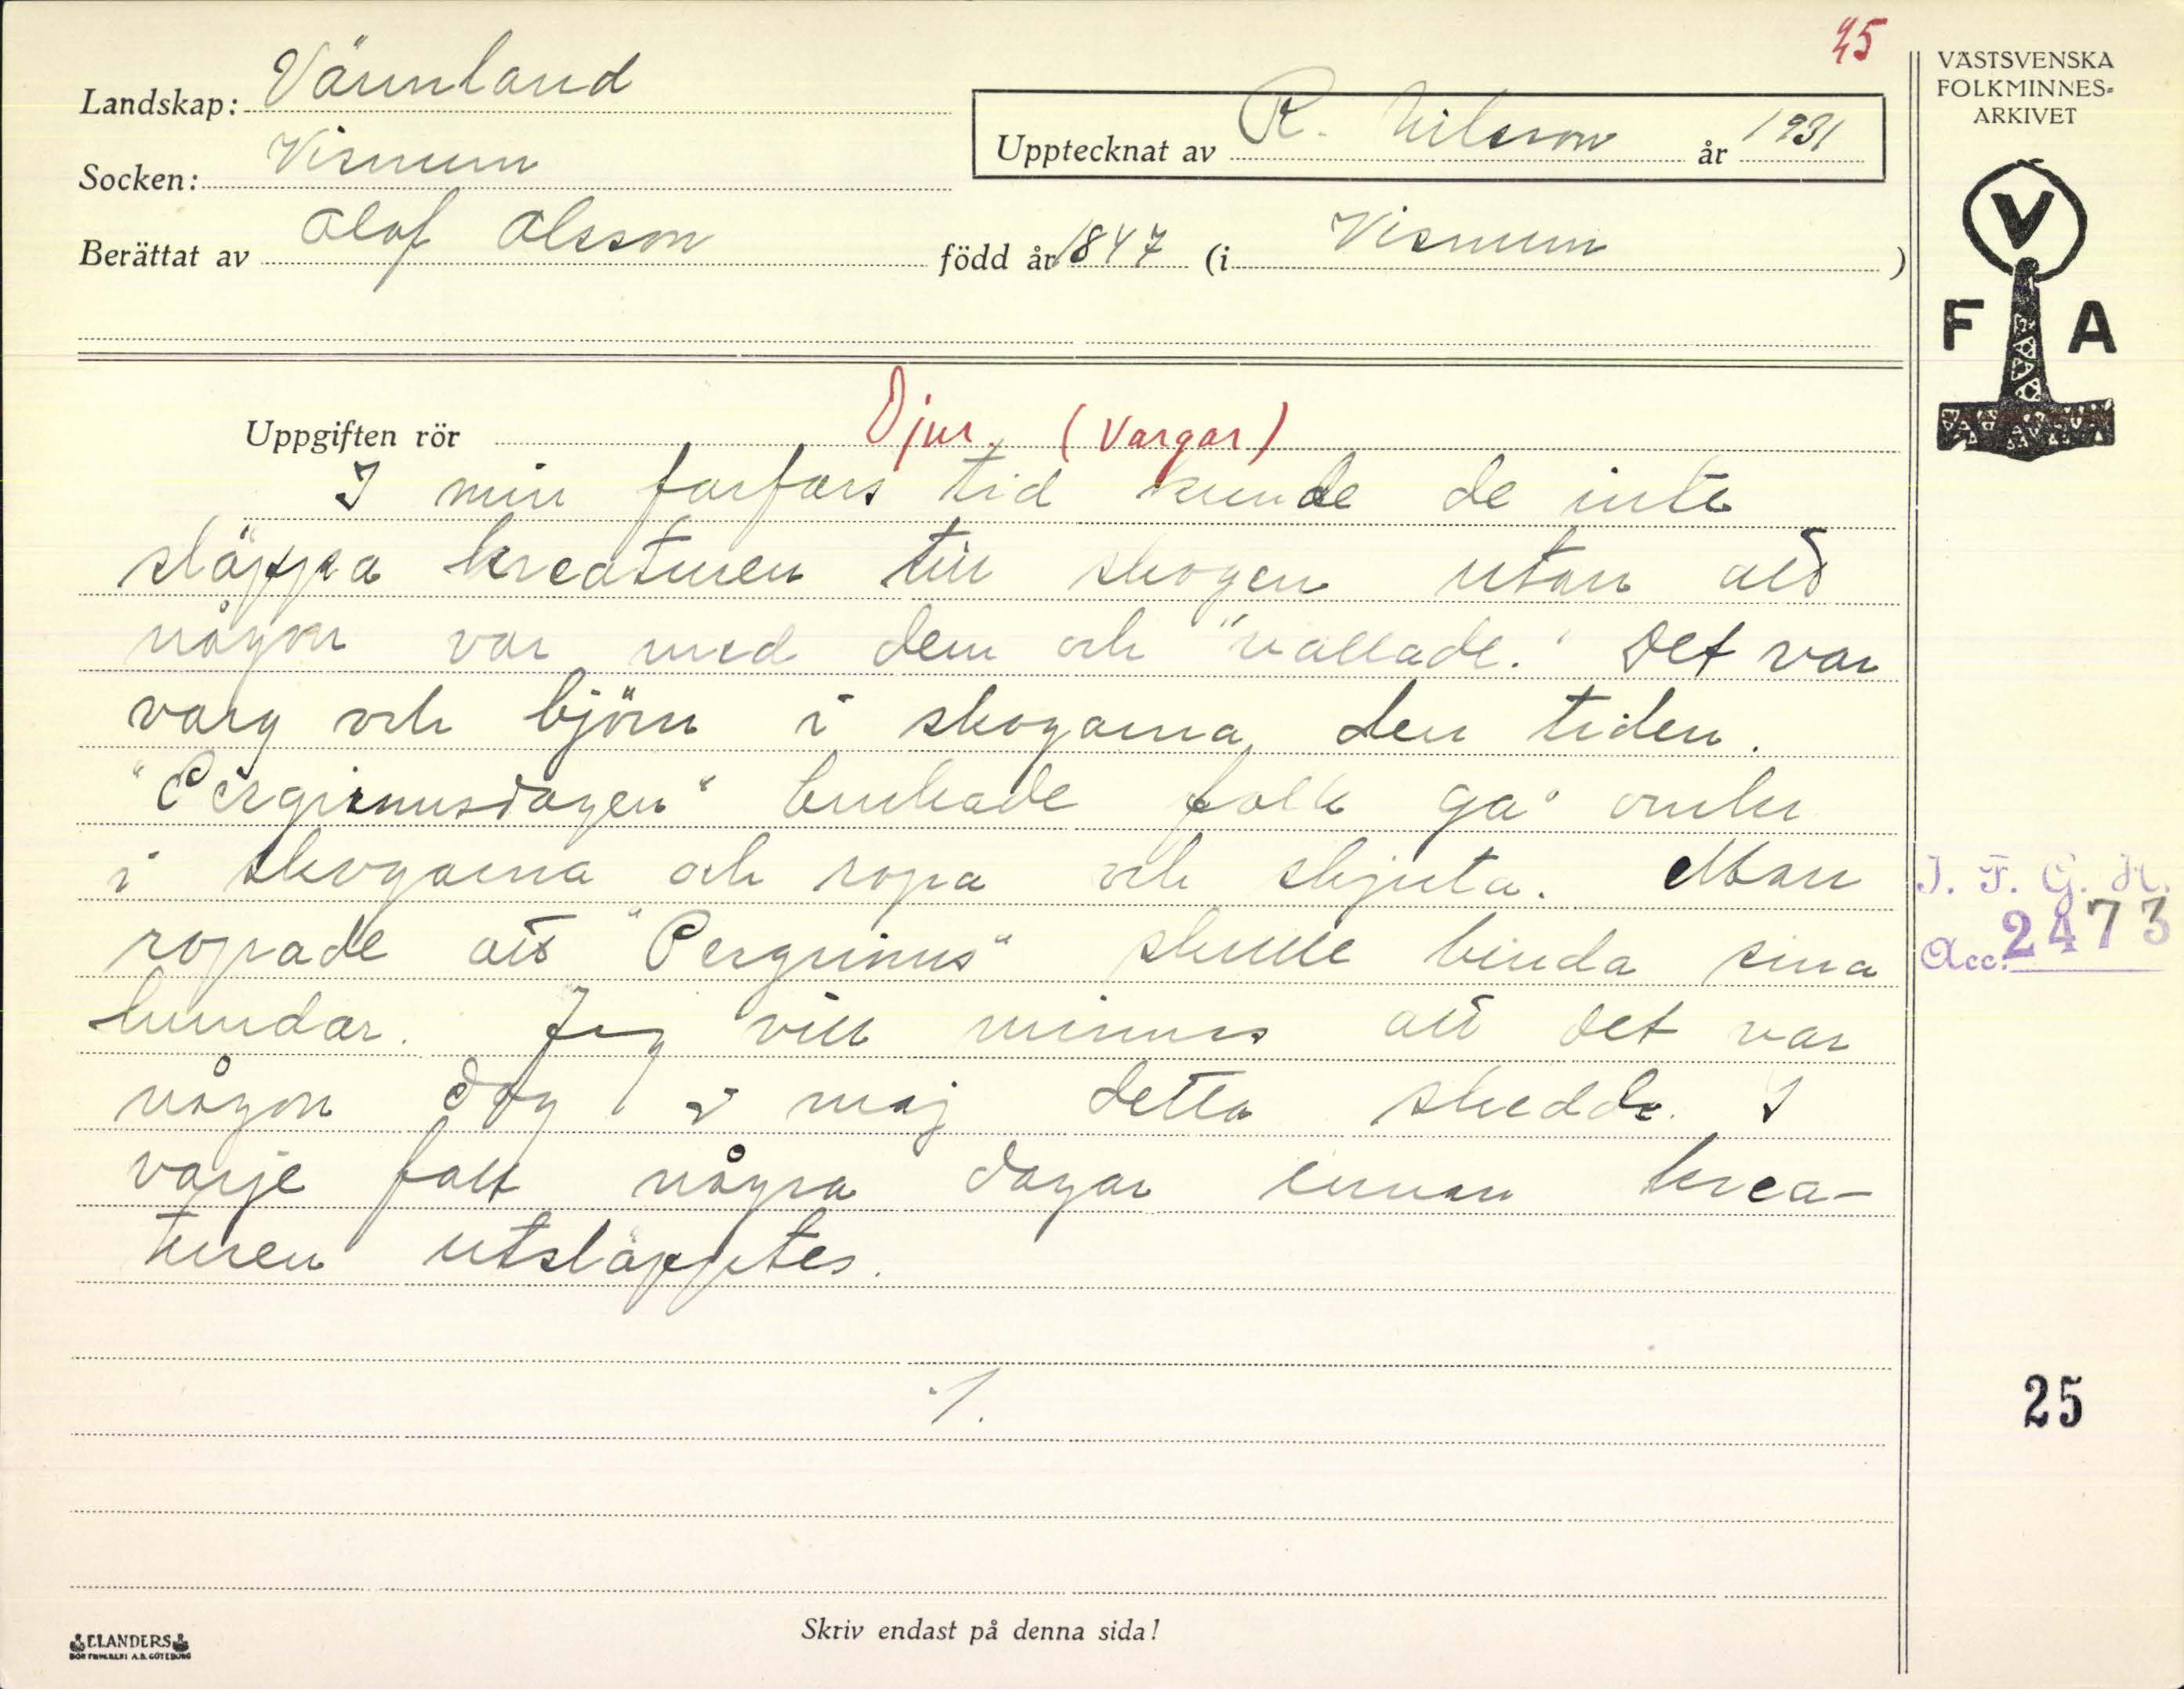 45
Landskap: Värmland
Socken: Visnum
Berättat av Olof Olsson född år 1847 (i Visnum )
Upptecknat av R. Nilsson år 1931
VÄSTSVENSKA
FOLKMINNES-
ARKIVET
V
F A
Uppgiften rör Djur. (Vargar)
I min farfars tid kunde de inte
släppa kreaturen till skogen utan att
någon var med dem och "vallade." Det var
varg och björn i skogarna den tiden.
"Pergrimusdagen" brukade folk gå omkr
i skogarna och ropa och skjuta. Man
ropade att "Pergrimus" skulle binda sina
hundar. Jag vill minnas att det var
någon dag i maj detta skedde. I
varje fall några dagar innan krea-
turen utsläpptes.
./.
I. F. G. H.
Acc. 2473
25
Skriv endast på denna sida!
ELANDERS
BOKTRYCKERI A.B. GÖTEBORG